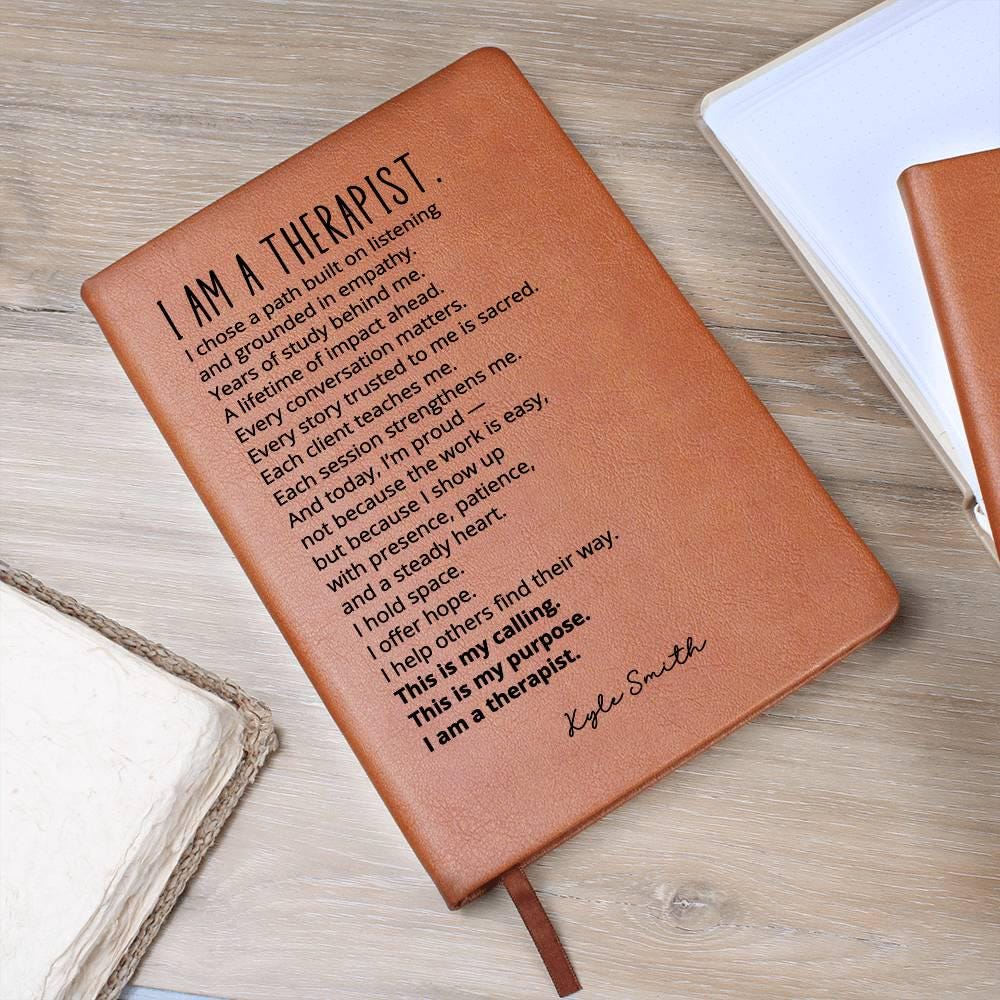 I AM A THERAPIST.
I chose a path built on listening
and grounded in empathy.
Years of study behind me.
A lifetime of impact ahead.
Every conversation matters.
Every story trusted to me is sacred.
Each client teaches me.
Each session strengthens me.
And today, I'm proud —
not because the work is easy,
but because I show up
with presence, patience,
and a steady heart.
I hold space.
I offer hope.
I help others find their way.
This is my calling.
This is my purpose.
I am a therapist.
Kyle Smith